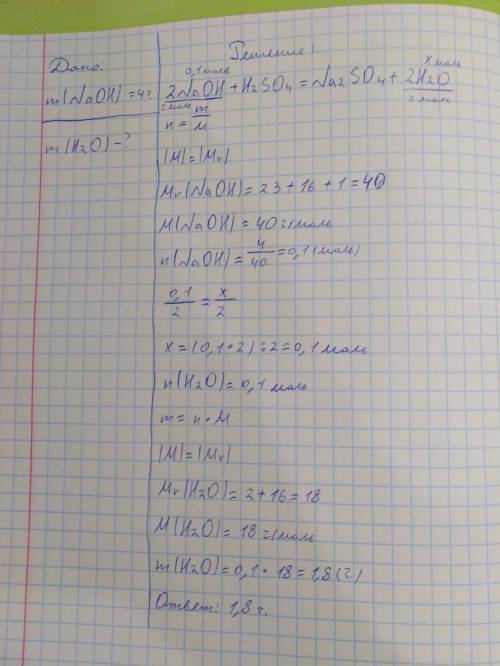 Дано:
m(NaOH)=4г
m(H₂O)-?
Решение:
0,1 моль
x моль
2NaOH + H₂SO₄ = Na₂SO₄ + 2H₂O
2 моль
2 моль
n = m/M
|M|=|Mr|
Mr(NaOH)=23+16+1=40
M(NaOH)=40 г/моль
n(NaOH)=4/40=0,1(моль)
0,1/2=x/2
x=(0,1*2):2=0,1 моль
n(H₂O)=0,1 моль
m=n·M
|M|=|Mr|
Mr(H₂O)=2+16=18
M(H₂O)=18 г/моль
m(H₂O)=0,1*18=1,8(г)
Ответ: 1,8 г.